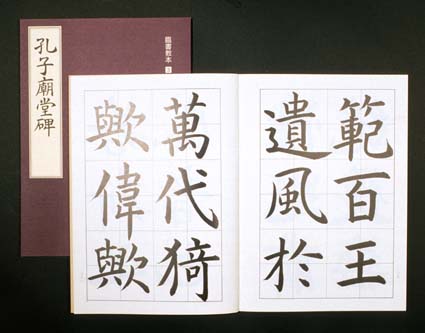 孔子廟堂碑
臨書教本
範百王
遺風於
萬代猗
歟偉歟